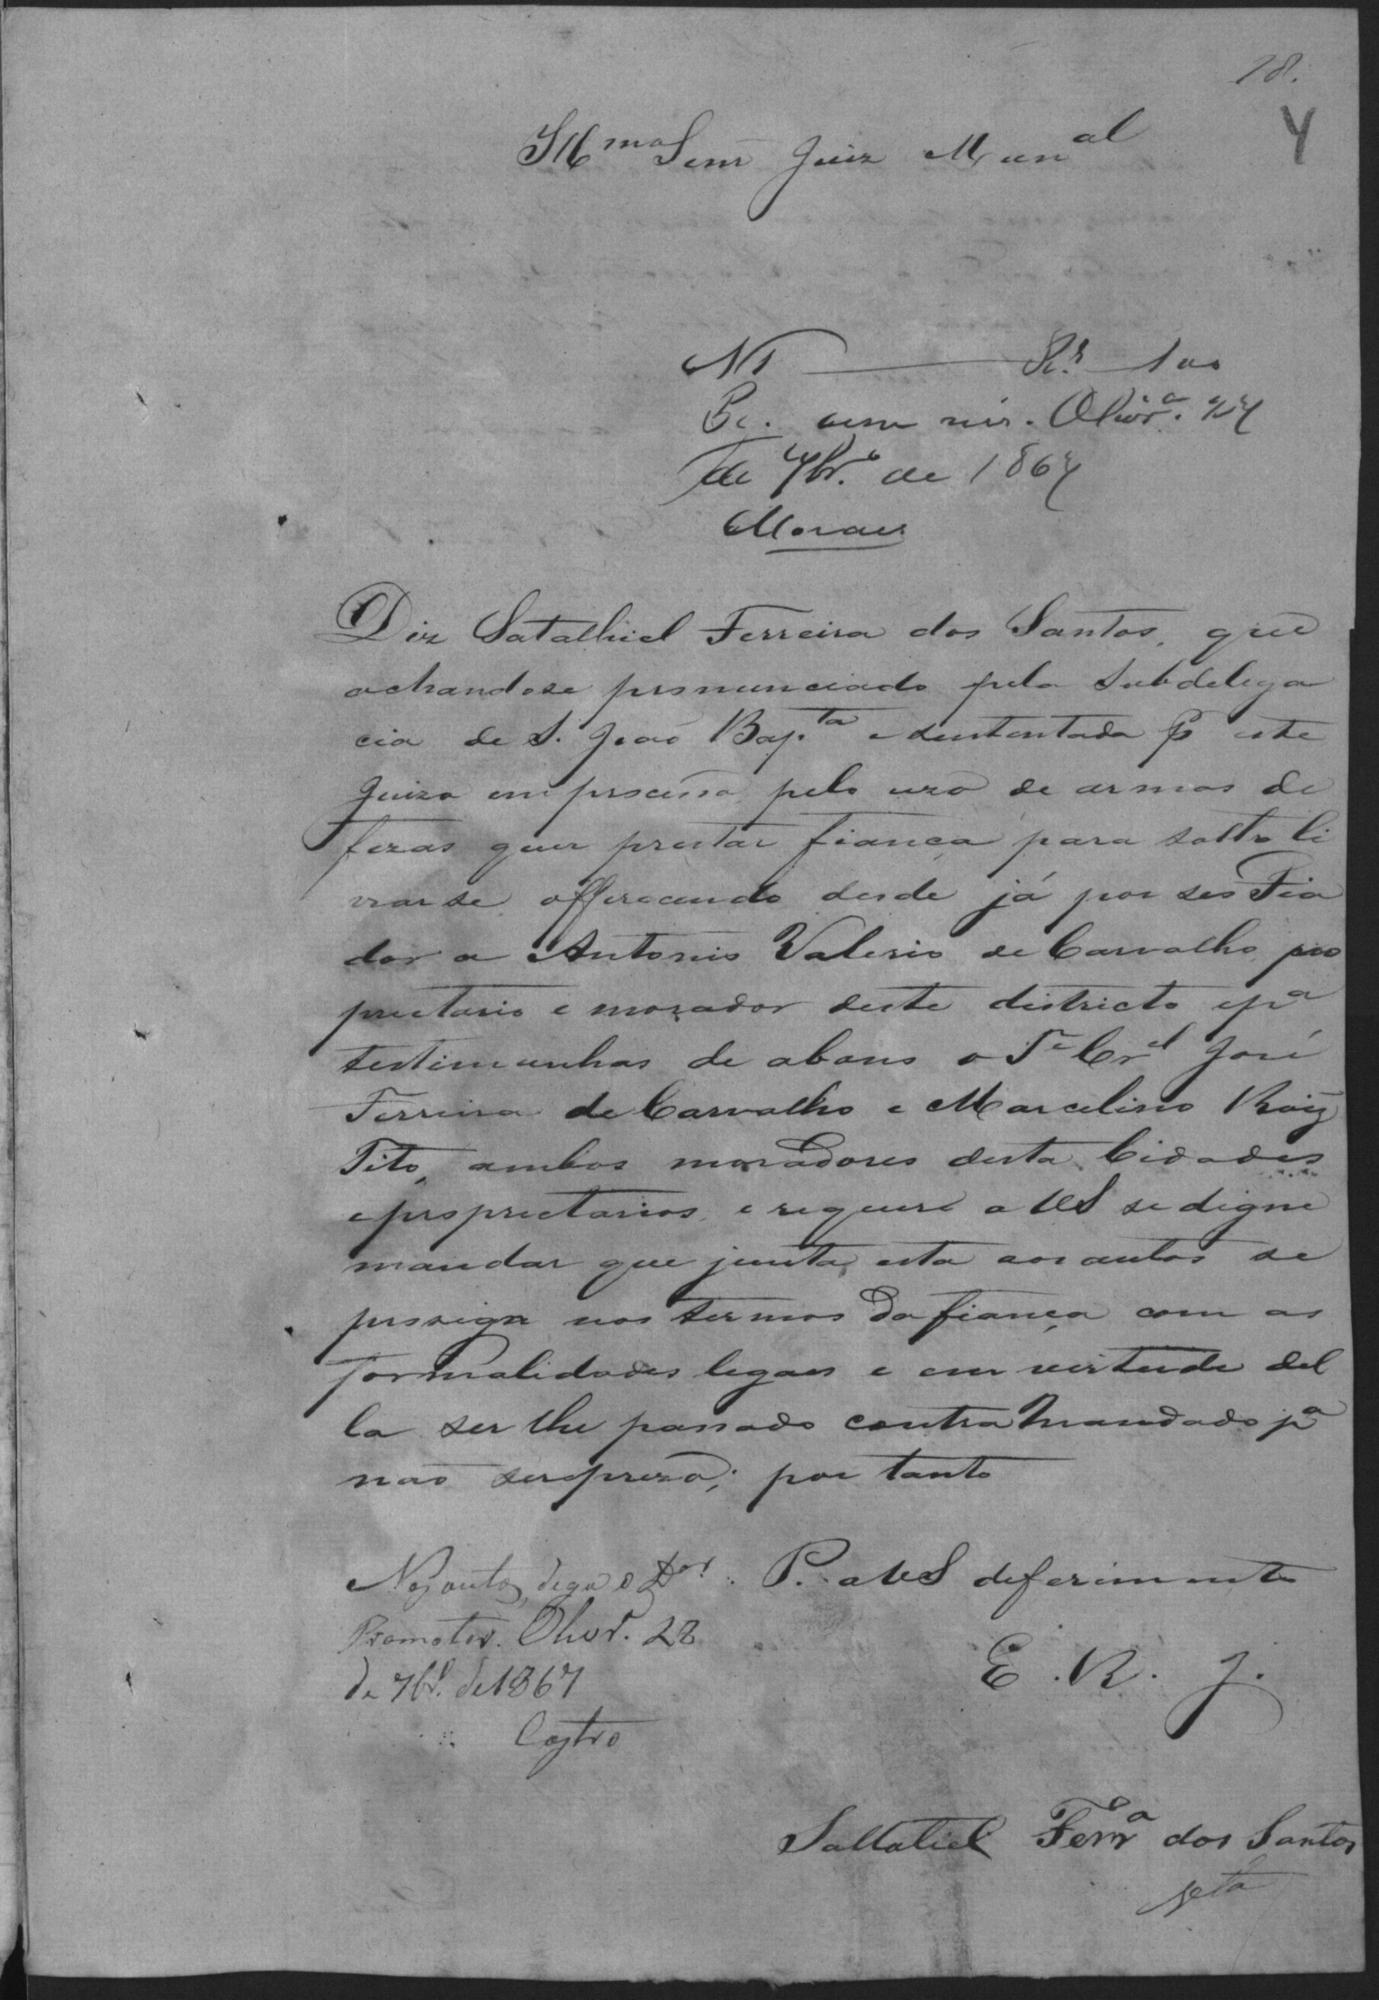 18.
4
Illmo Senr Juiz Munal
N 1 Rs 100
Pg. cem reis. Olivra. 27
de 7br.o de 1867
Moraes
Diz Satalhiel Ferreira dos Santos, que
achandose pronunciado pela Subdelega
cia de S. João Bapta e sustentada Pr este
Juizo em processo pelo uzo de armas de
fezas quer prestar fiança para solto li
vrarse offerecendo desde já por seo Fia
dor a Antonio Valerio de Carvalho, pro
prietario e morador deste districto epa
testimunhas de abono o Te Crel José
Ferreira de Carvalho e Marcelino Roiz
Tito, ambos moradores desta Cidades
eproprietarios, e requere a VS se digne
mandar que junta esta aos autos se
prosiga nos termos da fiança com as
formalidades legaes e em vertude del
la ser lhe passado contra Mandado pa
não serprezo; por tanto
P. a VS deferimento
Nos autos, diga o Dor
Promotor. Olivr. 28
de 7br. de 1867
Castro
E. R. J.
Saltatiel Ferra dos Santos